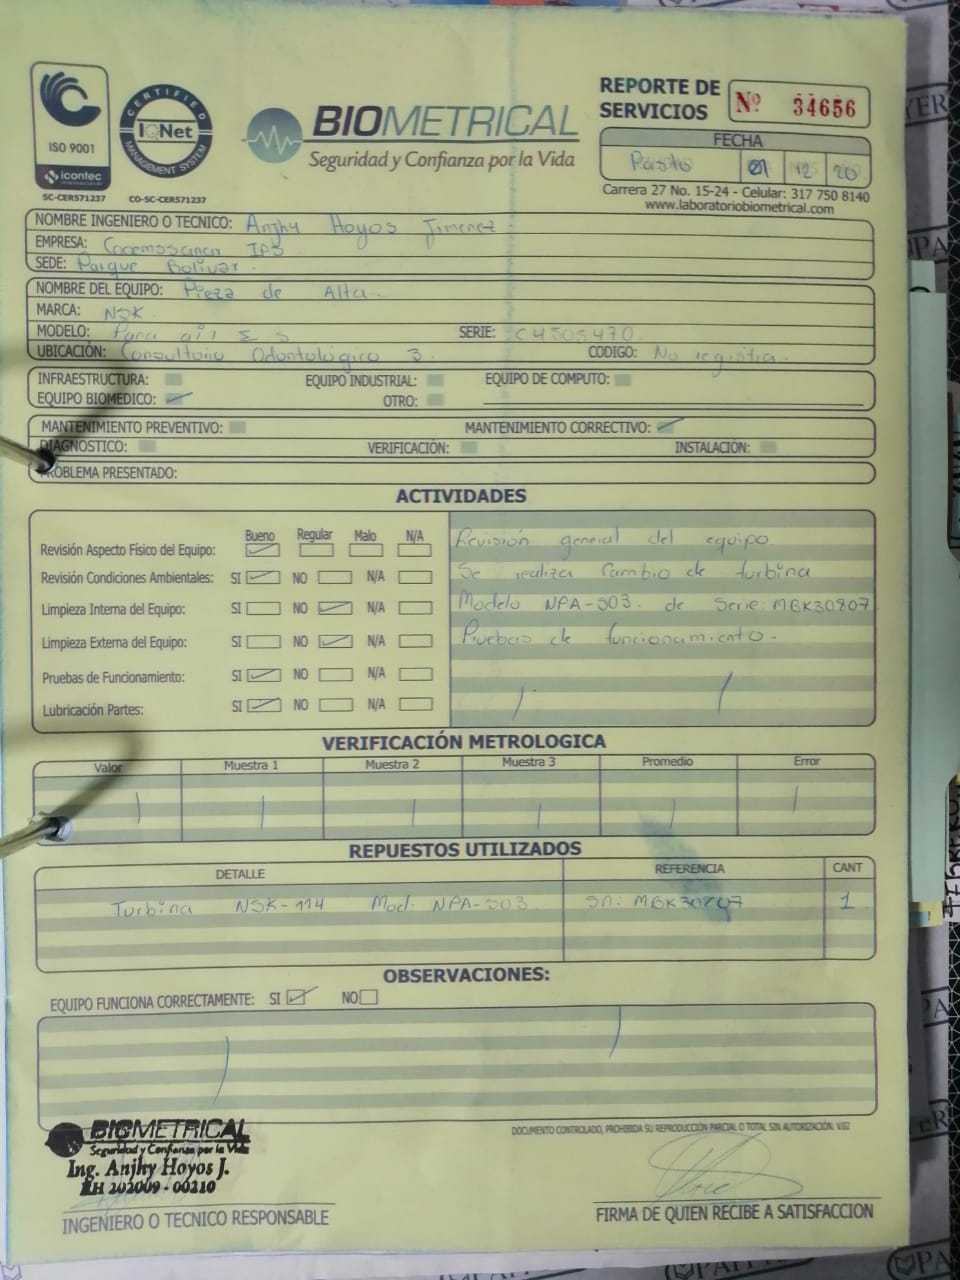 REPORTE DE SERVICIOS Nº 34656
ISO 9001
icontec
internacional
SC-CER571237
CERTIFIED
IQNet
MANAGEMENT SYSTEM
CO-SC-CER571237
BIOMETRICAL
Seguridad y Confianza por la Vida
FECHA
Pasto 01 12 20
Carrera 27 No. 15-24 - Celular: 317 750 8140
www.laboratoriobiometrical.com
NOMBRE INGENIERO O TECNICO: Anjhy Hoyos Jimenez
EMPRESA: IPS
SEDE: Parque Bolivar.
NOMBRE DEL EQUIPO: Pieza de Alta.
MARCA: NSK.
MODELO: Pana SERIE: C4505470
UBICACIÓN: Consultorio Odontológico 3. CODIGO: No registra.
INFRAESTRUCTURA: EQUIPO INDUSTRIAL: EQUIPO DE COMPUTO:
EQUIPO BIOMEDICO: OTRO:
MANTENIMIENTO PREVENTIVO: MANTENIMIENTO CORRECTIVO:
DIAGNOSTICO: VERIFICACIÓN: INSTALACIÓN:
PROBLEMA PRESENTADO:
ACTIVIDADES
Bueno Regular Malo N/A
Revisión Aspecto Físico del Equipo:
Revisión Condiciones Ambientales: SI NO N/A
Limpieza Interna del Equipo: SI NO N/A
Limpieza Externa del Equipo: SI NO N/A
Pruebas de Funcionamiento: SI NO N/A
Lubricación Partes: SI NO N/A
Revisión general del equipo
Se realiza cambio de turbina
Modelo NPA-S03. de Serie: MBK30807
Pruebas de funcionamiento.
VERIFICACIÓN METROLOGICA
Valor Muestra 1 Muestra 2 Muestra 3 Promedio Error
REPUESTOS UTILIZADOS
DETALLE REFERENCIA CANT
Turbina NSK-114 Mod: NPA-S03 Sn: MBK30807 1
OBSERVACIONES:
EQUIPO FUNCIONA CORRECTAMENTE: SI NO
DOCUMENTO CONTROLADO, PROHIBIDA SU REPRODUCCIÓN PARCIAL O TOTAL SIN AUTORIZACIÓN. V.02
BIOMETRICAL
Seguridad y Confianza por la Vida
Ing. Anjhy Hoyos J.
RH 202009 - 00210
INGENIERO O TECNICO RESPONSABLE
FIRMA DE QUIEN RECIBE A SATISFACCION